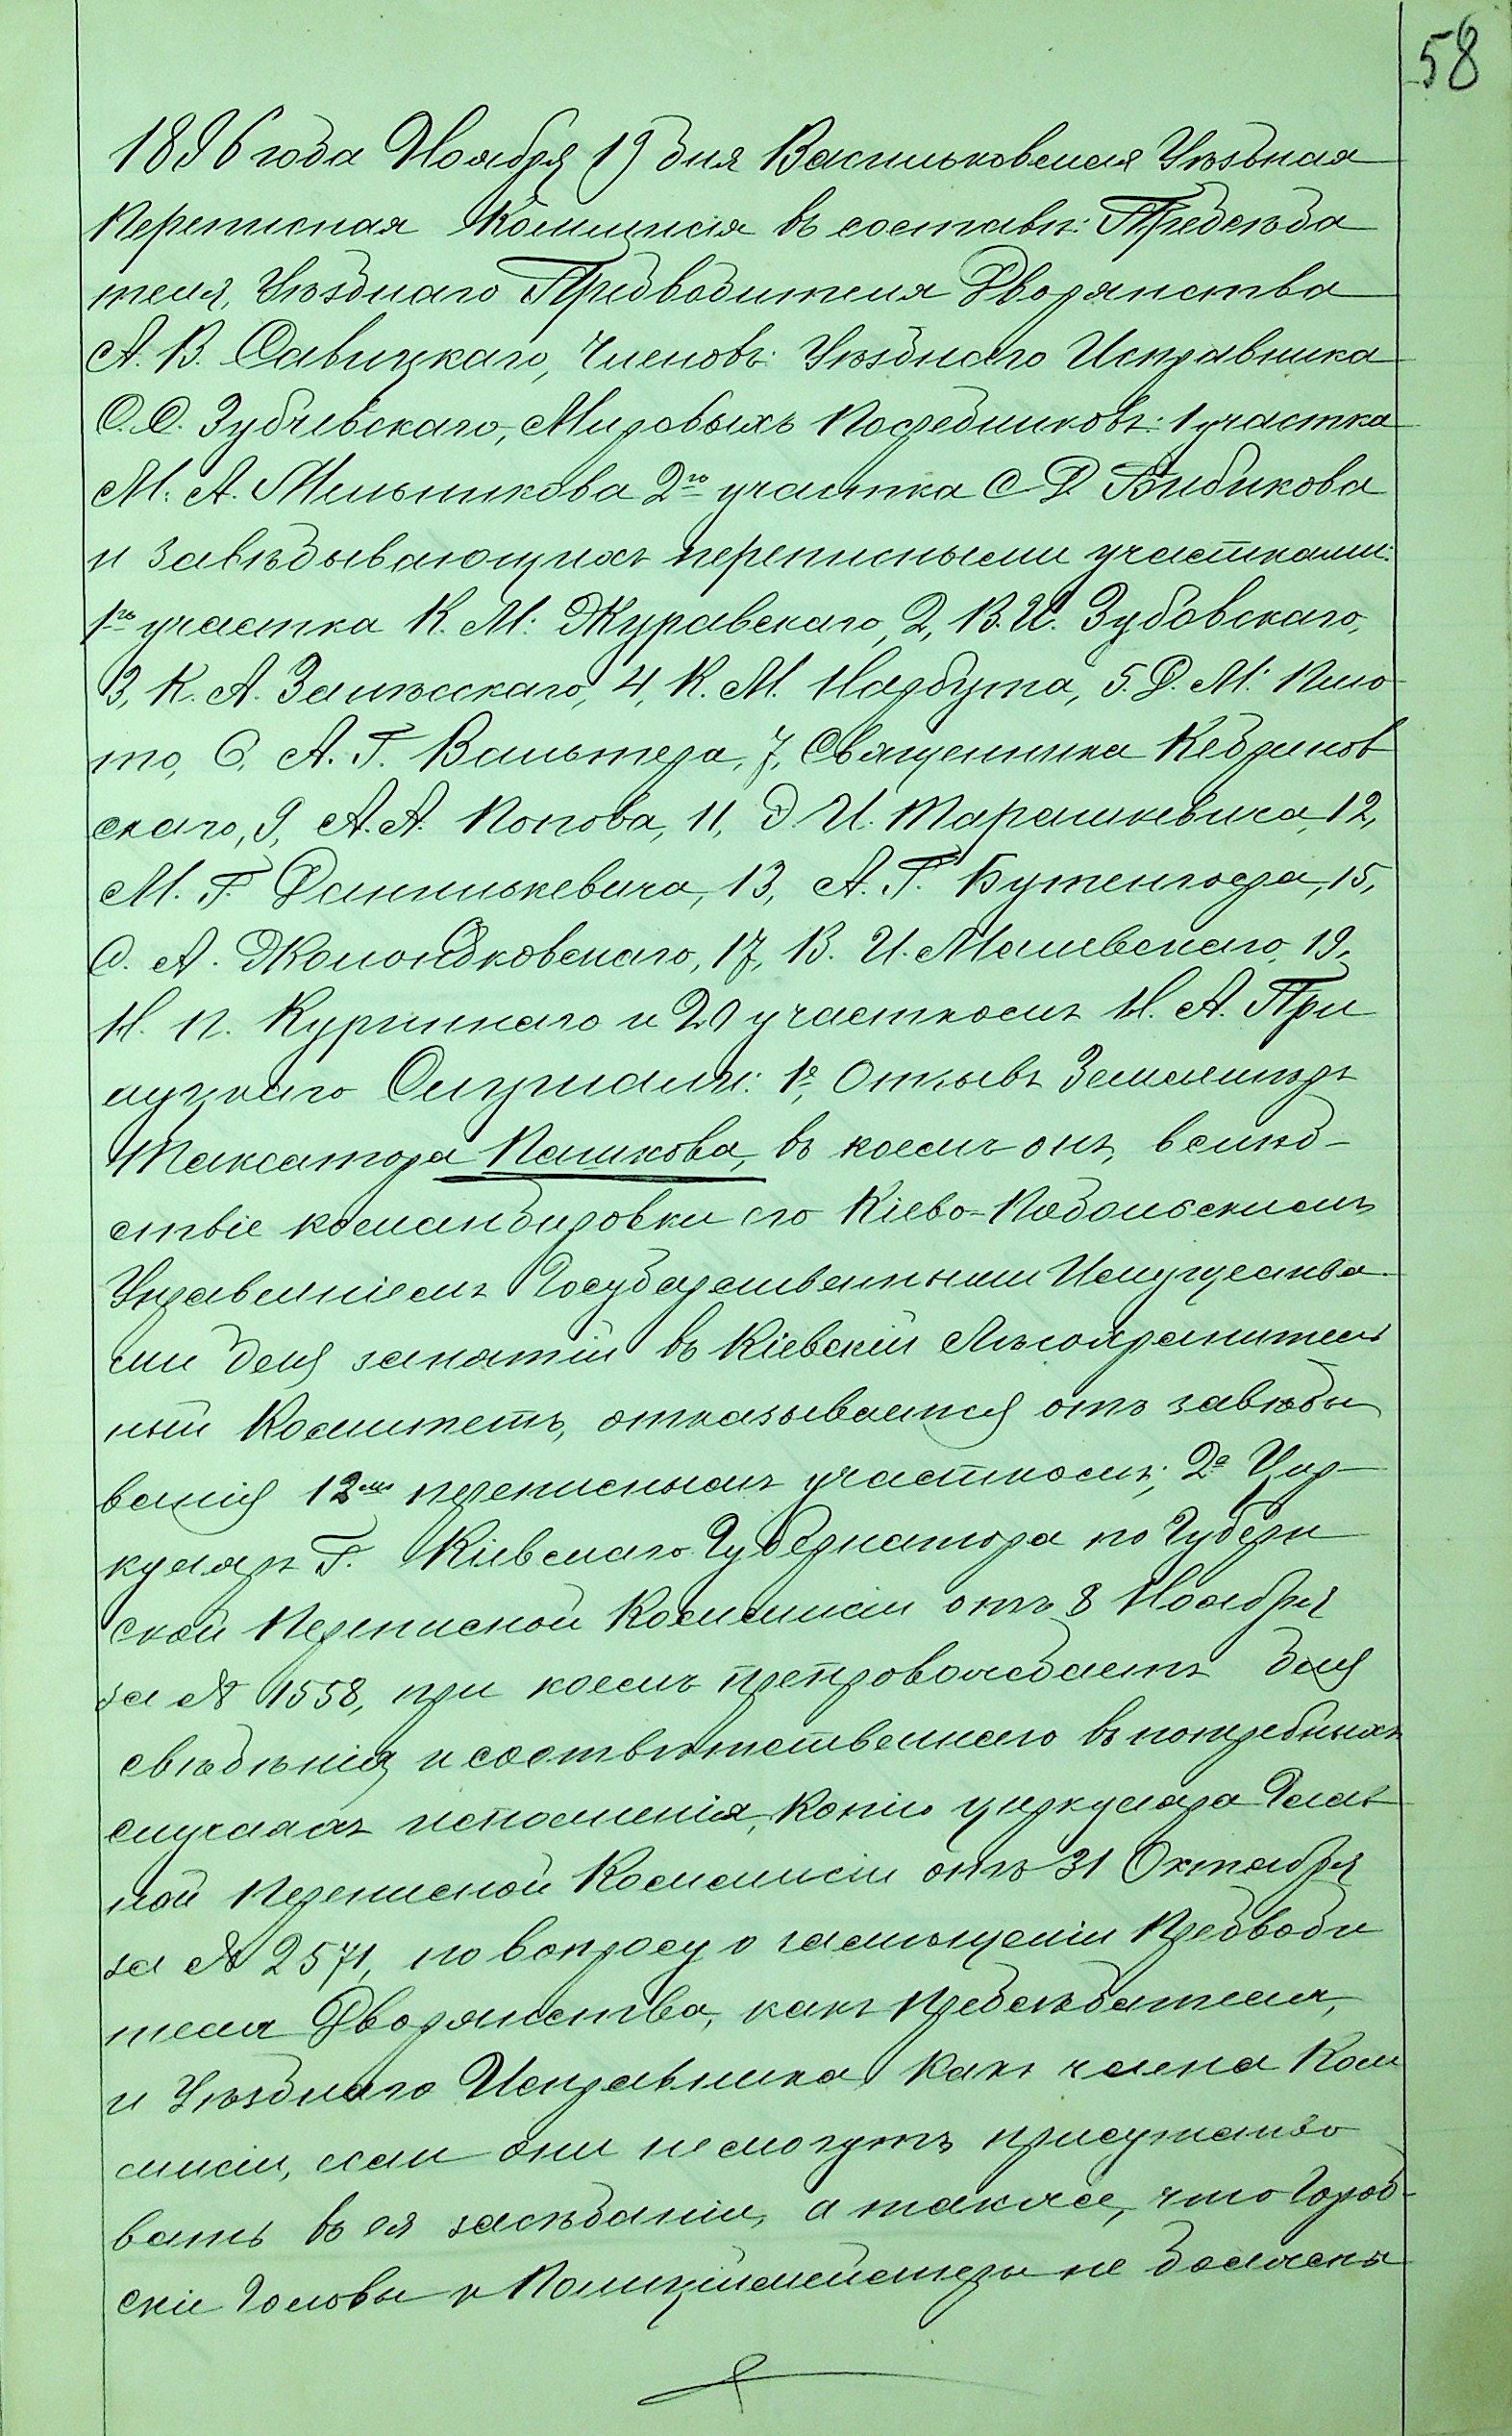 58
1896 года Ноября 19 дня Васильковская Уѣздная
Переписная Коммиссія въ составѣ: Предсѣда
теля, Уѣзднаго Предводителя Дворянства
А. В. Савицкаго, Членовъ: Уѣзднаго Исправника
О. О. Зубчевскаго, Мировыхъ Посредниковъ: 1 участка
М. А. Мельникова 2го участка С. Д. Бибикова
и завѣдывающихъ переписными участками:
1го участка К. М. Журавскаго, 2, В. И. Зубовскаго,
3, К. А. Залѣсскаго, 4, К. М. Нарбута, 5. Д. М. Кило
то, 6, А. Г. Вальтера, 7, Священника Кедринов
скаго, 9, А. А. Попова, 11, Э. И. Тарашкевича, 12,
М. Г. Данилькевича, 13, А. Г. Бутенгофа, 15,
О. А. Жолондковскаго, 17, В. И. Машевскаго, 19,
Н. П. Курпинаго и 20 участкомъ Н. А. При
луцкаго Слушали: 1е, Отзывъ Землемѣръ
Таксатора Пашкова, въ коемъ онъ, вслѣд-
ствіе командировки его Кіево-Подольскимъ
Управленіемъ Государственными Имущества
ми для занятій въ Кіевскій Лѣсоохранитель
ный Комитетъ, отказывается отъ завѣды
ванія 12мъ переписнымъ участкомъ; 2е Цир-
куляръ Г. Кіевскаго Губернатора по Губерн
ской Переписной Коммиссіи отъ 8 Ноября
за № 1558, при коемъ препровождаетъ для
свѣдѣнія и соотвѣтственнаго въ потребныхъ
случаяхъ исполненія, копію циркуляра Глав
ной Переписной Коммиссіи отъ 31 Октября
за № 2571, по вопросу о замѣщеніи Предводи
теля Дворянства, какъ Предсѣдателя,
и Уѣзднаго Исправника какъ члена Ком
миссіи, если они не могутъ присутство
вать въ ея засѣданіи, а также, что Город-
скіе Головы и Полиціймейстеры не должны